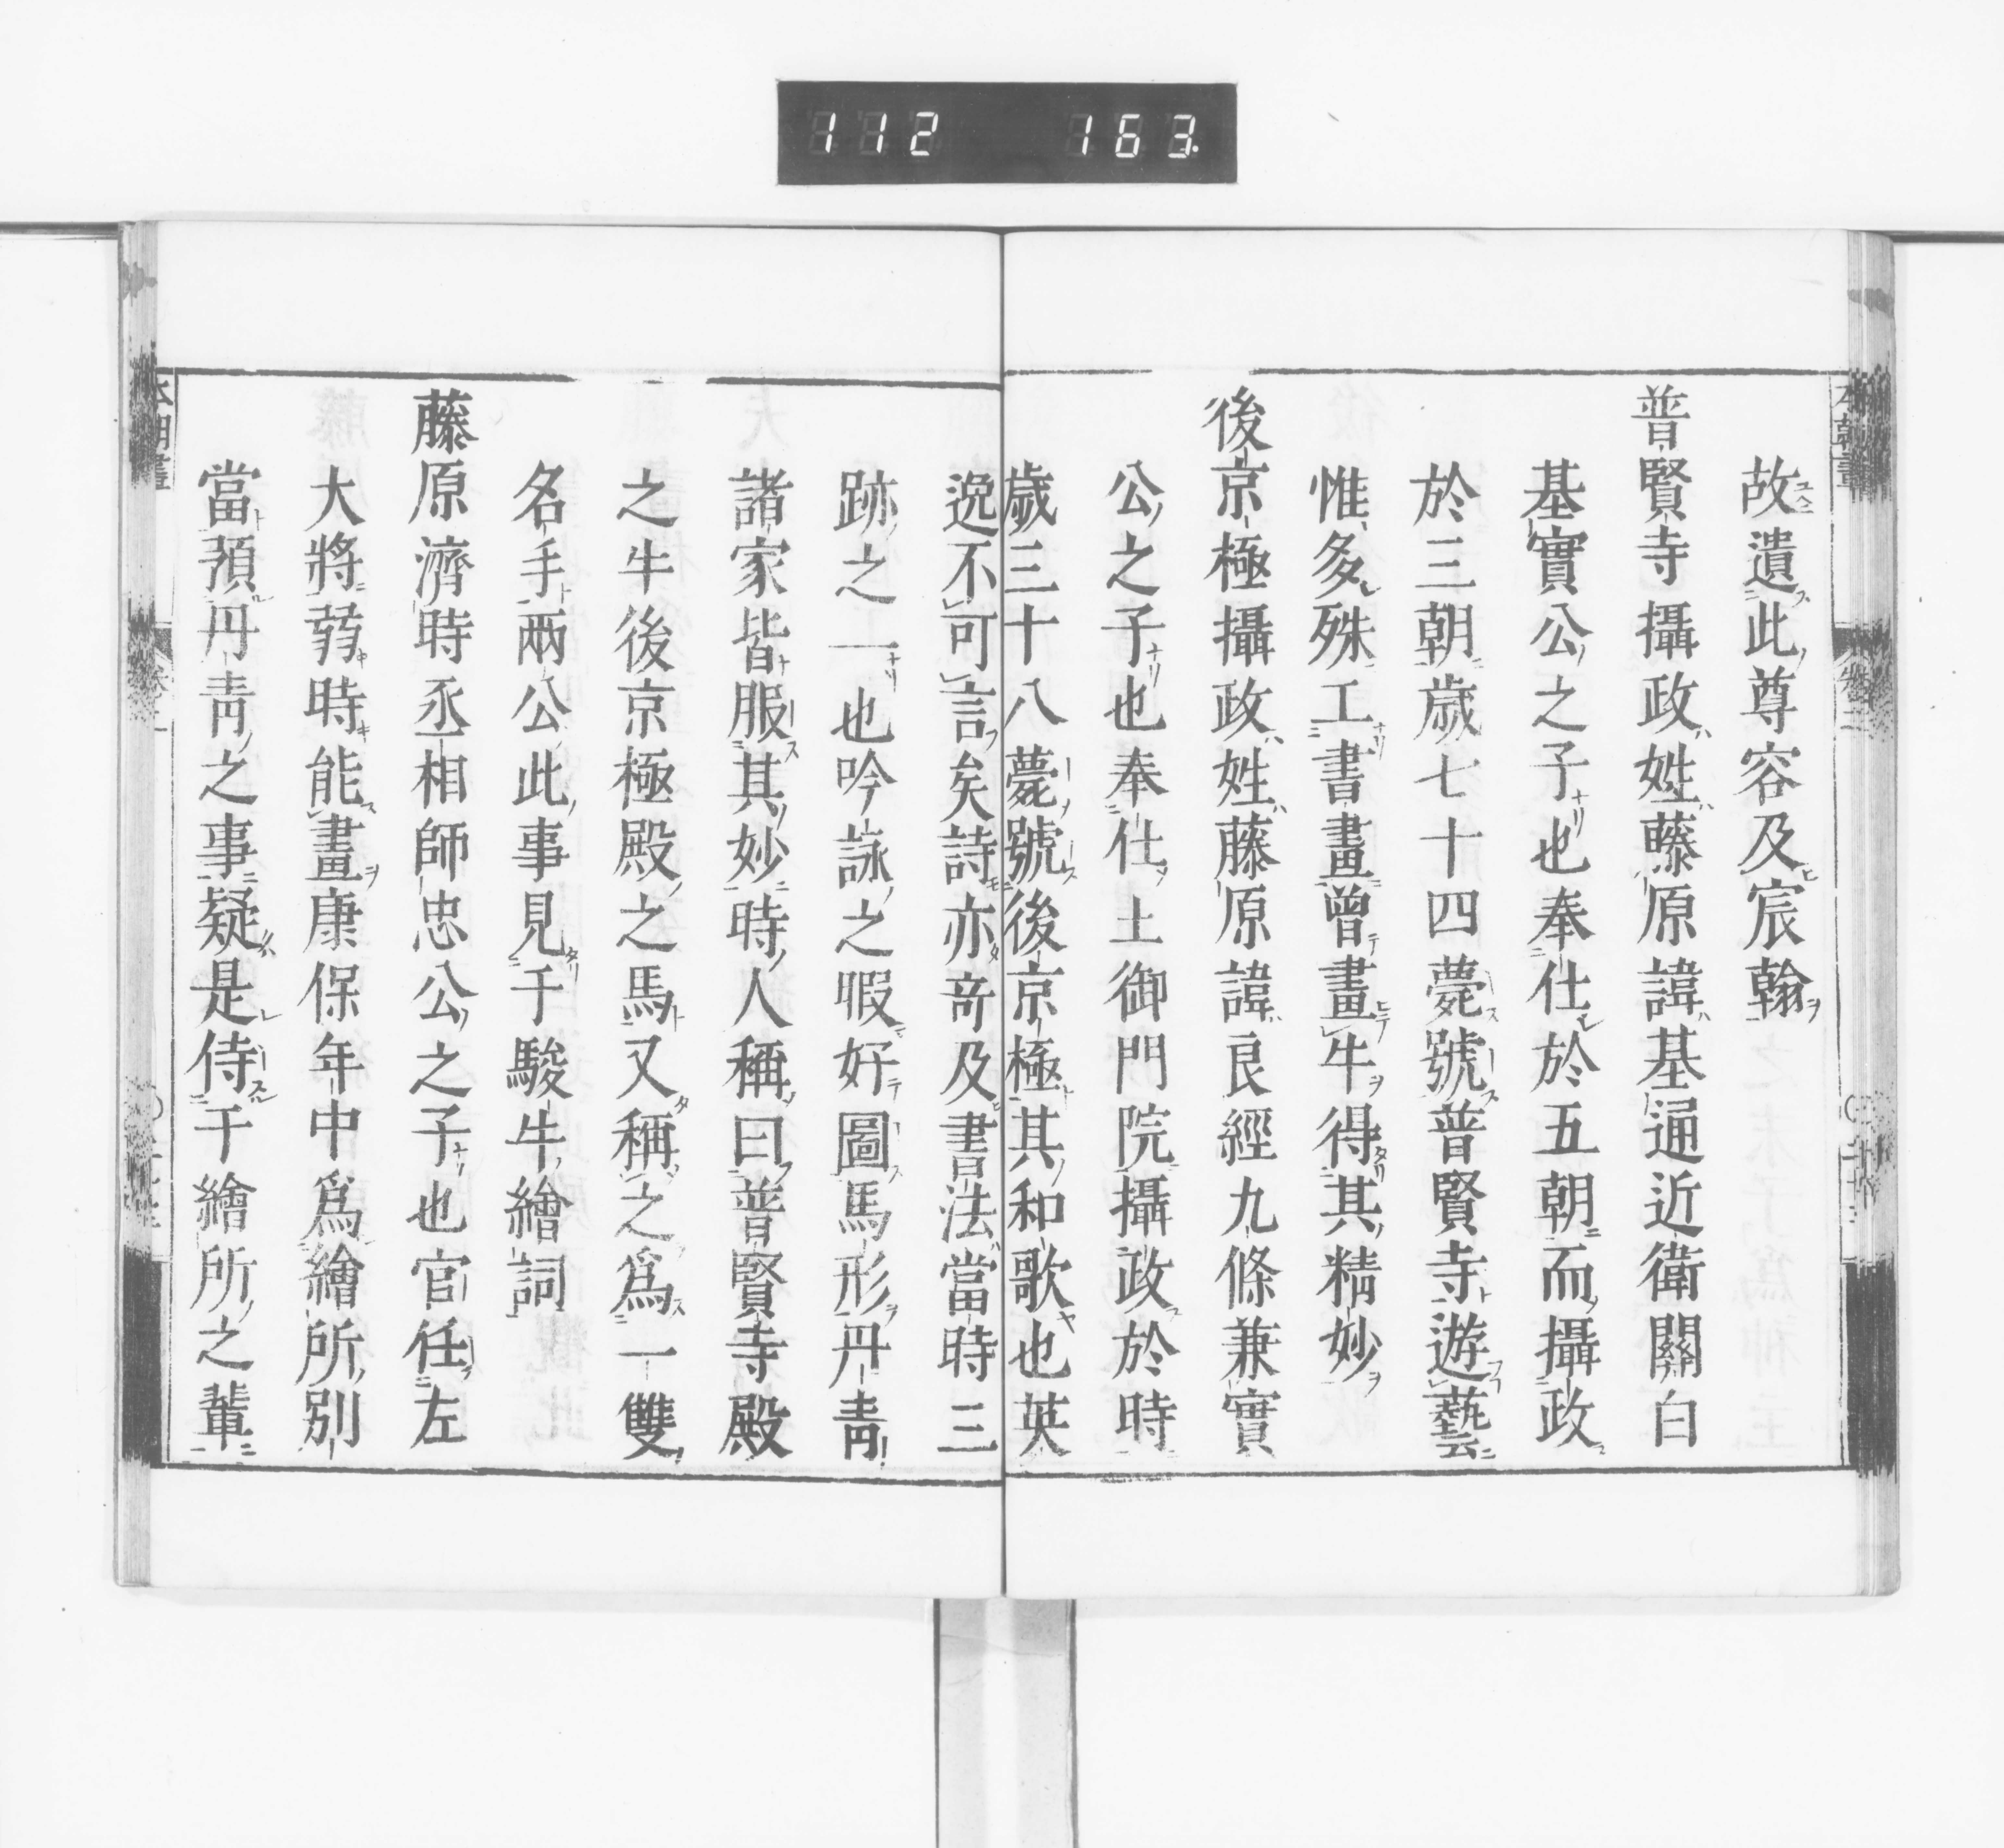 112 163.
故遺此尊容及宸翰
普賢寺攝政姓藤原諱基通近衛關白
基實公之子也奉仕於五朝而攝政
於三朝歲七十四薨號普賢寺遊藝
惟多殊工書畫曾畫牛得其精妙
後京極攝政姓藤原諱良經九條兼實
公之子也奉仕土御門院攝政於時
歲三十八薨號後京極其和歌也英
逸不可言矣詩亦竒及書法當時三
跡之一也吟詠之暇好圖馬形丹青
諸家皆服其妙時人稱曰普賢寺殿
之牛後京極殿之馬又稱之爲一雙
名手兩公此事見于駿牛繪詞
藤原濟時丞相師忠公之子也官任左
大將弱時能畫康保年中爲繪所別
當預丹青之事疑是侍于繪所之輩